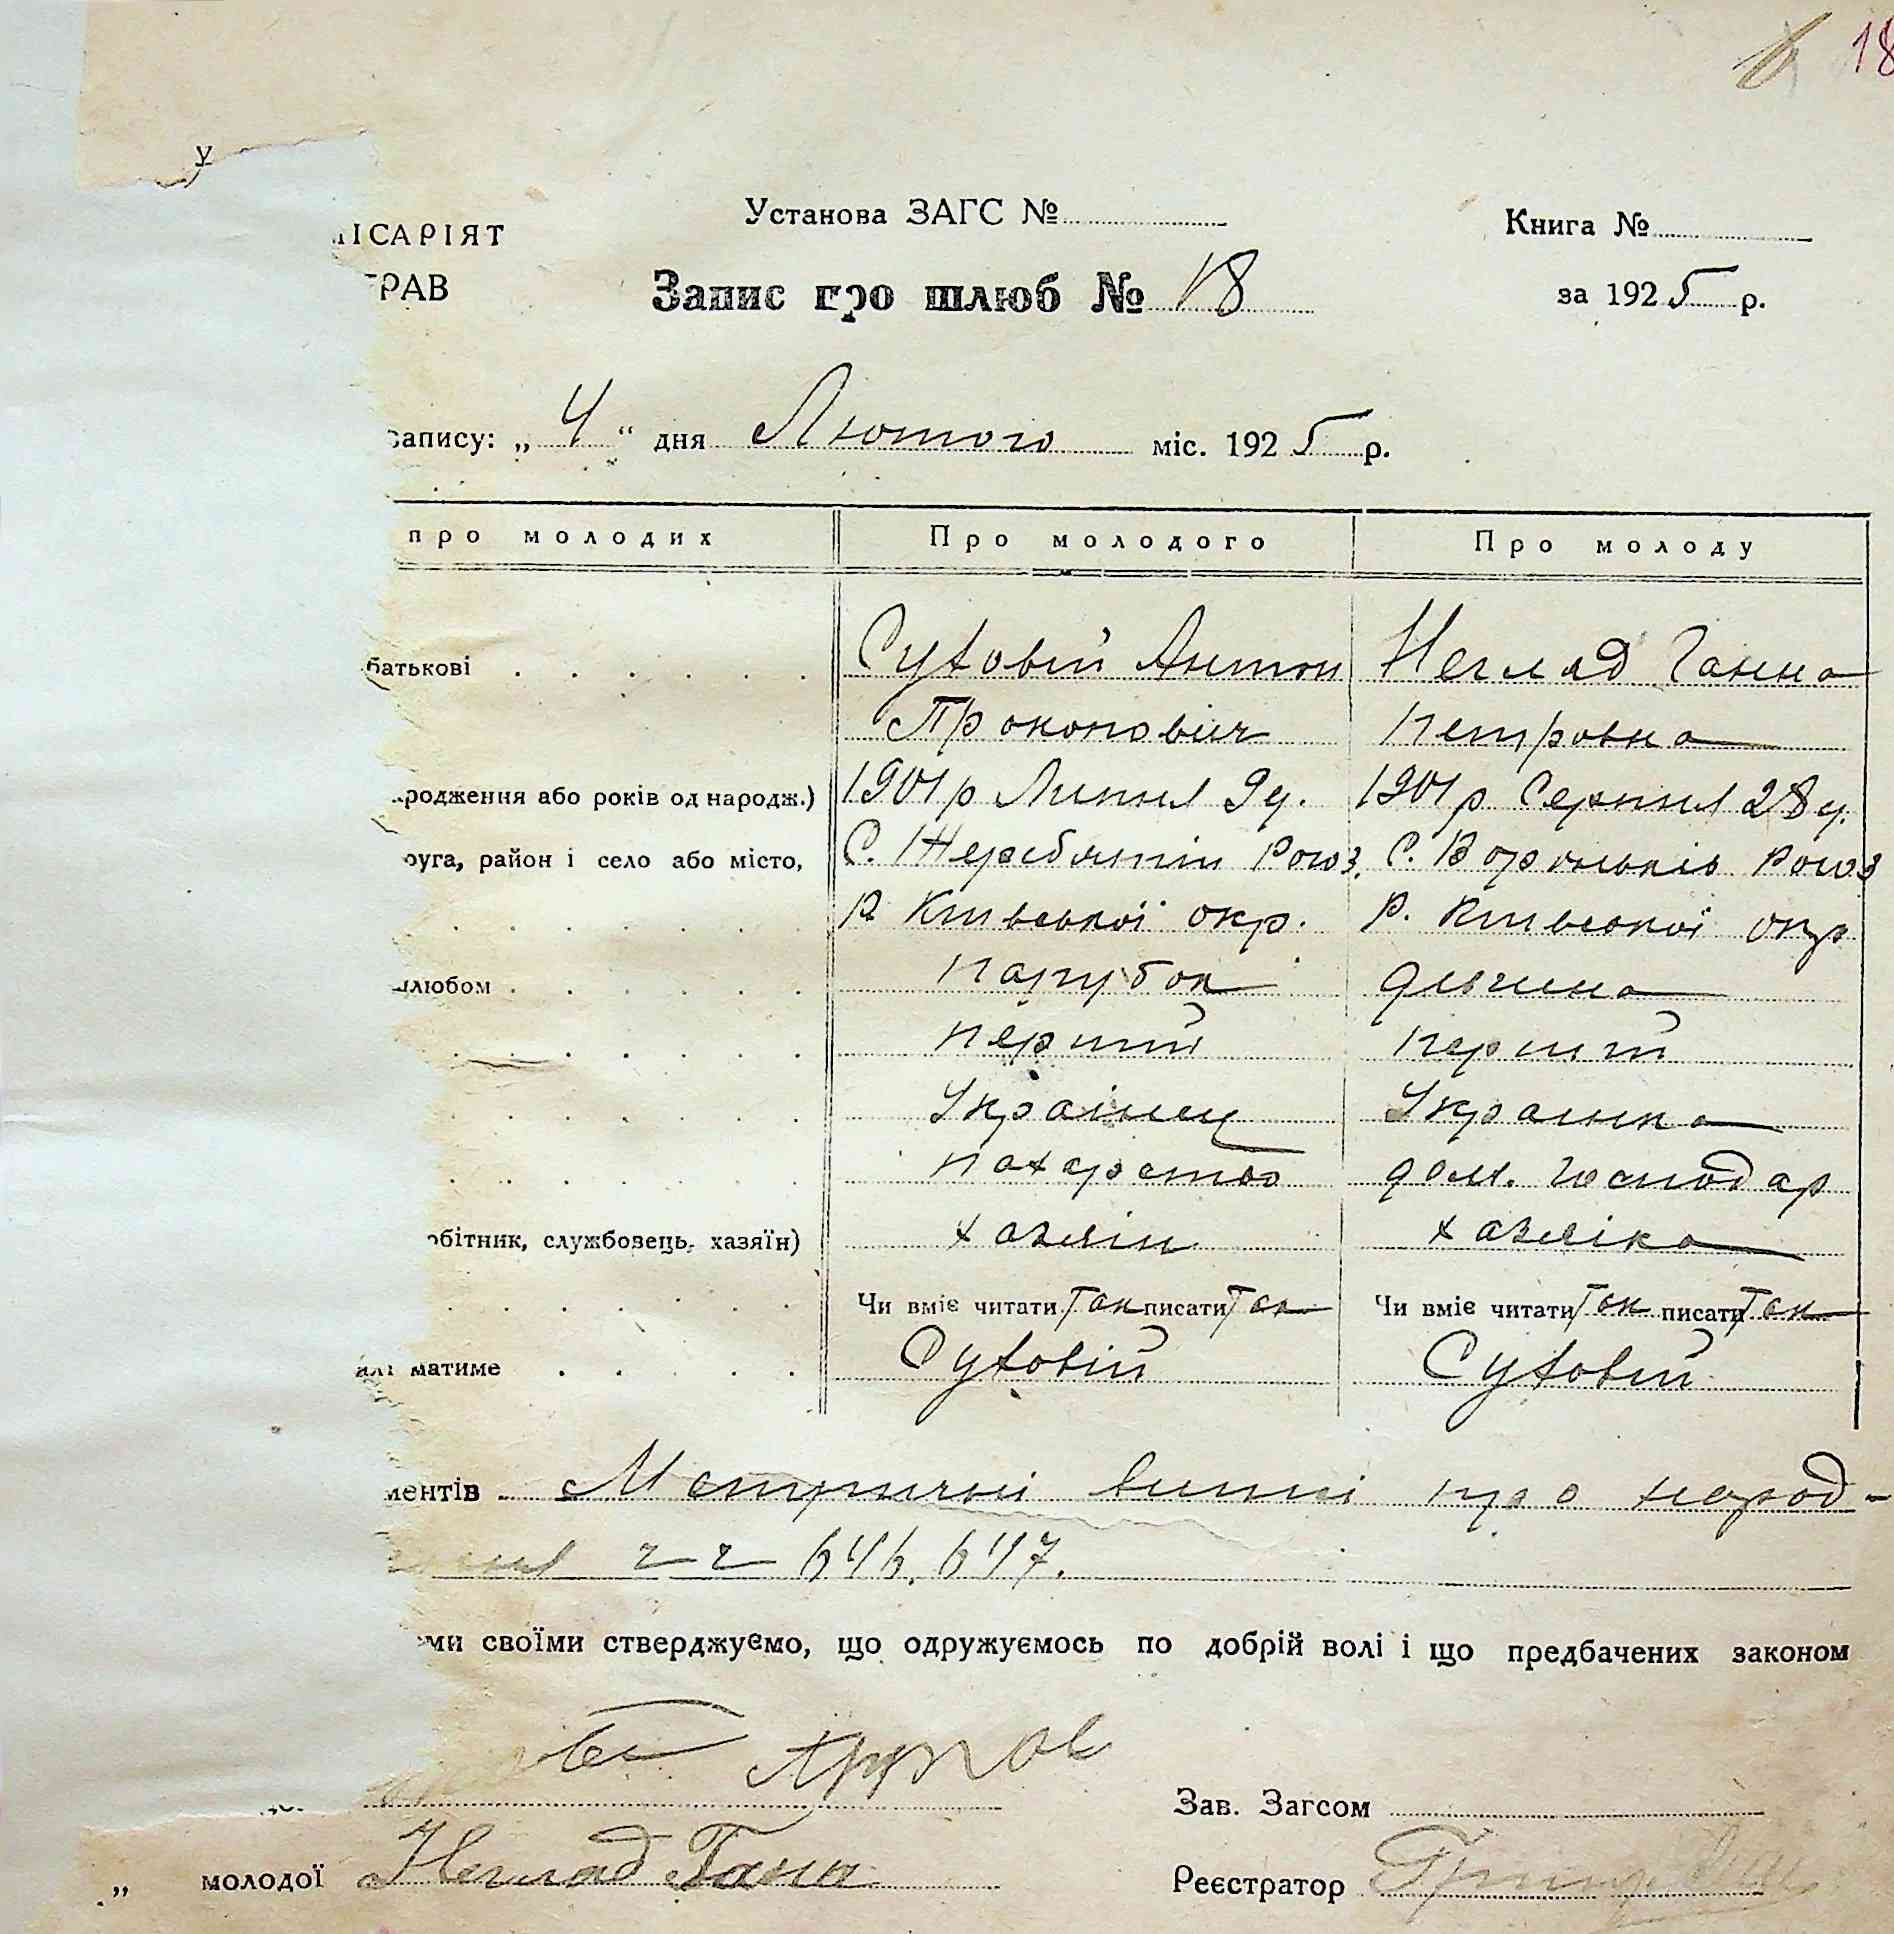 18
у
ІСАРІЯТ
РАВ
Установа ЗАГС №
Книга №
Запис про шлюб № 18
за 1925 р.
запису: „ 4 “ дня Лютого міс. 1925 р.
про молодих Про молодого Про молоду
батькові Сутовій Антон Неглад Ганна
Прокопович Петровна
родження або років од народж.) 1901 р Липня 9 ч. 1901 р Серпня 28 ч.
руга, район і село або місто, С. Жеребятін Рогоз. С. Вороньків Рогоз
р Київської окр. Р. Київської окр
шлюбом парубок дівчина
перший перший
Українец Українка
пахарство дом. господар
обітник, службовець, хазяїн) хазяін хазяіка
Чи вміє читати Так писати Так Чи вміє читати Так писати Так
матиме Сутовій Сутовий
ментів Метричні випис про народ-
ження чч 646, 647.
ми своїми стверджуємо, що одружуємось по добрій волі і що предбачених законом
Зав. Загсом
„ молодої Неглад Гана
Реєстратор